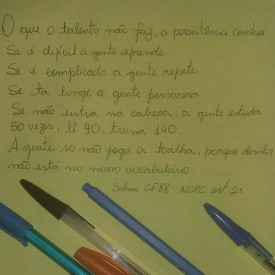 O que o talento não faz, a persistência constrói.
Se é difícil a gente aprende.
Se é complicado a gente repete.
Se tá longe a gente persevera.
Se não entra na cabeça, a gente estuda
50 vezes, lê 90, treina 140.
A gente só não joga a toalha, porque desistir
não está no nosso vocabulário.